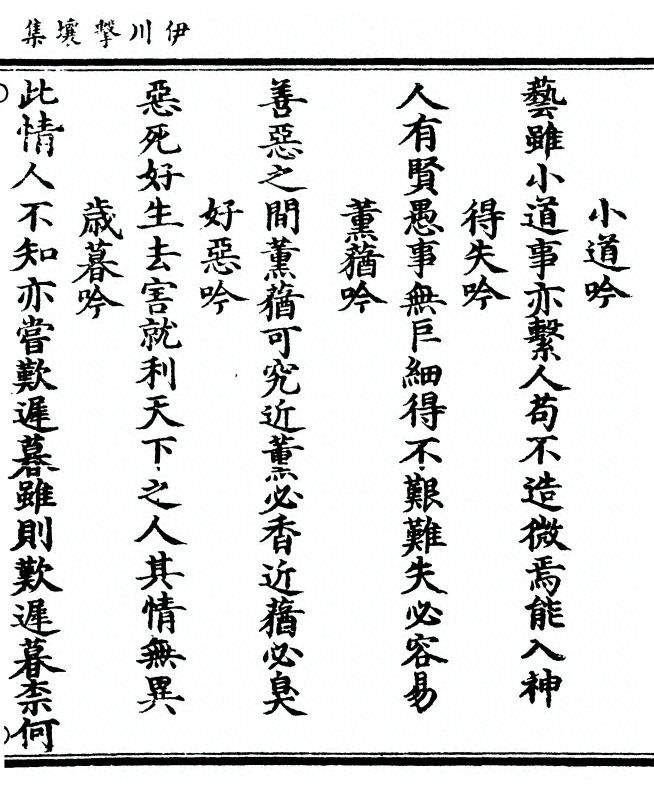 伊川擊壤集
小道吟
藝雖小道事亦繫人苟不造微焉能入神
得失吟
人有賢愚事無巨細得不艱難失必容易
薰蕕吟
善惡之間薰蕕可究近薰必香近蕕必臭
好惡吟
惡死好生去害就利天下之人其情無異
歳暮吟
此情人不知亦嘗歎遲暮雖則歎遲暮柰何